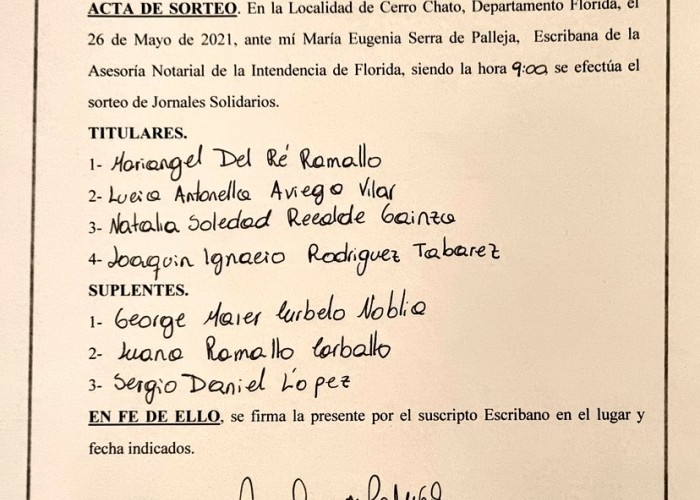 ACTA DE SORTEO. En la Localidad de Cerro Chato, Departamento Florida, el
26 de Mayo de 2021, ante mí María Eugenia Serra de Palleja, Escribana de la
Asesoría Notarial de la Intendencia de Florida, siendo la hora 9:00 se efectúa el
sorteo de Jornales Solidarios.
TITULARES.
1- Mariangel Del Ré Ramallo
2- Lucia Antonella Aviego Vilar
3- Natalia Soledad Recalde Gainza
4- Joaquin Ignacio Rodriguez Tabarez
SUPLENTES.
1- George Maier Curbelo Noblia
2- Juana Ramallo Carballo
3- Sergio Daniel López
EN FE DE ELLO, se firma la presente por el suscripto Escribano en el lugar y
fecha indicados.